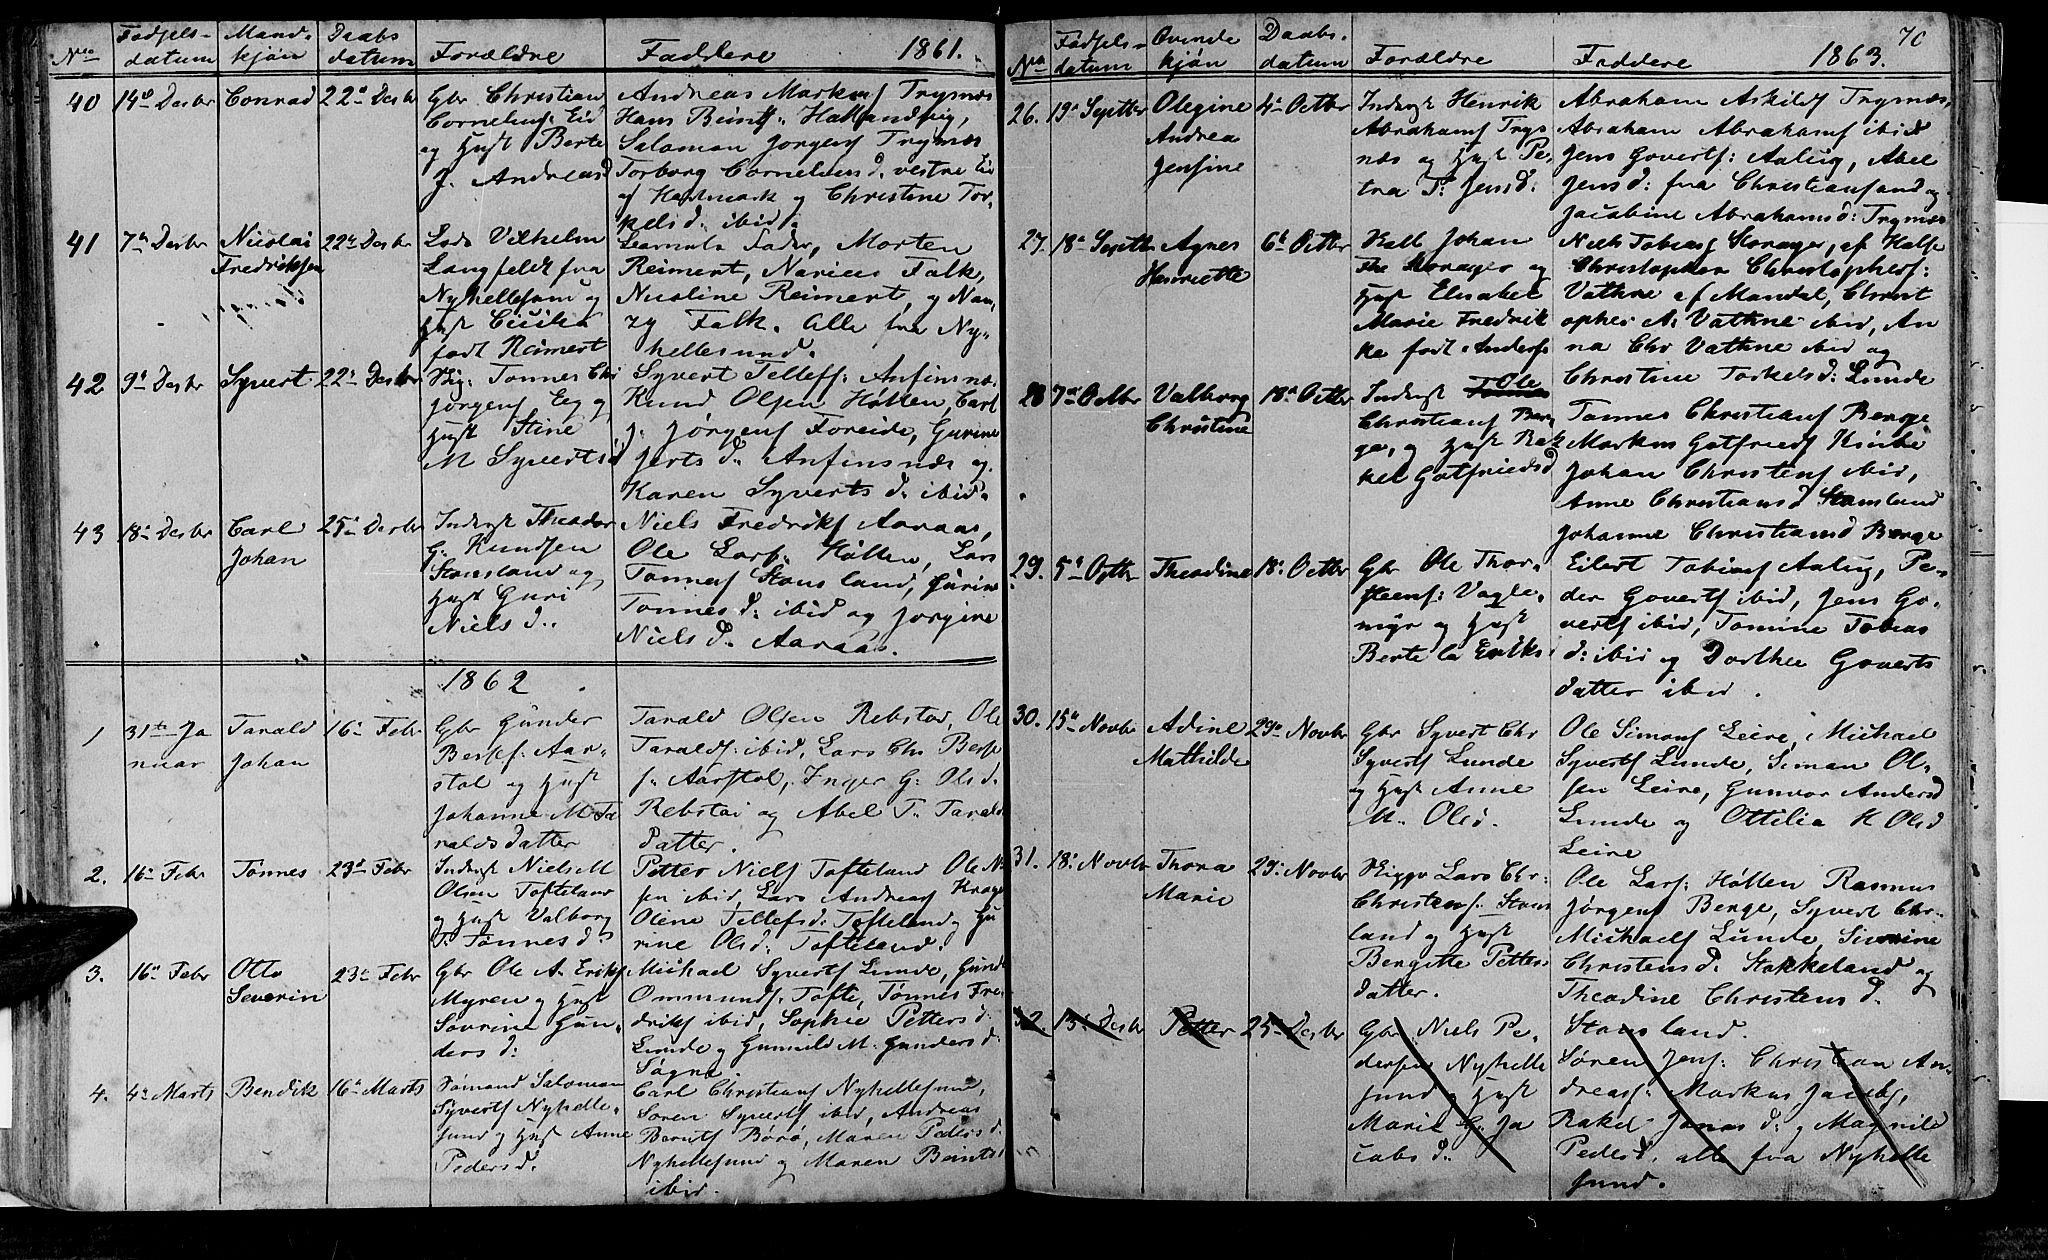 No
Fødsels-
datum
Mand-
kjøn
Daabs
datum
Forældre
Faddere
1861.
40
14d Decbr
Conrad
22d Decbr
Gbr Christian
Cornelius Eid
og Hust Berte
J. Andreasd
Andreas Markus Trysnæs
Hans Bent
Salomon Jørgens Trysnæs
Torborg Cornelius d. vestre Eid
af Hartmark og Christine Tor-
kels d. ibid.
41
7de Decbr
Nicolai
Fredriksen
22de Decbr
Lods Vilhelm
Langfeldt fra
Nyhellesund og
Hust Cicilia
født Reimert
Barnets Fader, Morten
Reimert, Falk,
Nicoline Reimert, og Nan-
zy Falk. Alle fra Ny-
hellesund.
42
9d Decbr
Syvert
22de Decbr
Tønnes Chr
Jørgens Eeg og
Hust Stine
M Syvertsd
Syvert Tellefs: Anfinsnæs
Knud Olsen Høllen, Carl
J. Jørgens Foreide, Gurine
Syverts d. Anfinsnæs og
Karen Syverts d. ibid.
43
18de Decbr
Carl
Johan
25de Decbr
Inderst Theodor
G. Knudsen
Stausland og
Hust Guri
Niels d.
Niels Fredriks Aaraas,
Ole Lars: Høllen, Lars
Tønnes Stausland, Gurine
Tønnes d: ibid og Jorgine
Niels d. Aaraas.
1862
1
31te Ja
nuar
Tarald
Johan
16de Febr
Gbr Gunder
Aar-
støl og Hust
Johanne M Ta
ralds datter
Tarald Olsen Rebstad, Ole
Taralds: ibid, Lars Chr
Aarstøl, Inger G: Ols d.
Rebstad og Abel T. Taralds
Datter.
2.
16de Febr
Tønnes
23d Febr
Inderst Niels M
Olsen Tofteland
og Hust Valborg
T. Tønnes d.
Petter Niels Tofteland Ole N
sen ibid, Lars Andreas Krage
Oline Tellefs d: Tofteland og Gu
rine Ols d: Tofteland.
3.
16de Febr
Otto
Severin
23de Febr
Gbr Ole A. Eriks
Myren og Hust
Sørine Gun-
ders d:
Michael Syverts Lunde, Gund
Ommunds: Tofte, Tønnes Fre-
driks ibid, Sophie Petters d:
Lunde og Gunnild M. Gunders d:
Søgne.
4.
4de Marts
Bendik
16de Marts
Sømand Salomon
Syverts Nyhelle-
sund og Hust Anne
Peders d.
Carl Christians Nyhellesund,
Søren Syverts ibid, Andreas
Bernts Borø, Maren Peders d:
Nyhellesund og Maren Bernts
ibid.
70
No
Fødsels-
datum
Qvinde
kjøn
Daabs-
datum
Forældre
Faddere
1863.
26.
19d Septbr
Olegine
Andrea
Jensine
4de Octbr
Inderst Henrik
Abrahams Trys
næs og Hust Pe-
tra T. Jens d:
Abraham Askilds Trysnæs,
Abraham Abrahams ibid
Jens Goverts: Aalug, Abel
Jens d: fra Christiansand og
Jacobine Abrahams d: Trysnæs
27.
18de Septbr
Agnes
Henriette
6te Octbr
Johan
The Korager og
Hust Elisabet
Marie Fredrik
ke født Anders
Niels Tobias Korager, af Halse
Christopher Christophers:
Vathne af Mandal, Christ
opher A. Vathne ibid, An
na Chr Vathne ibid og
Christine Torkels d: Lunde
28
7de Octbr
Valborg
Christine
18de Octbr
Inderst Ole
Christians Ber-
ge, og Hust Ra
kel Gotfrieds d
Tønnes Christians Berge
Markus Gotfrieds
Johan Christens ibid,
Anne Christians d Stausland
Johanne Christians d Berge
29.
5d Octbr
Theodine
18de Octbr
Gbr Ole Thor-
steens: Vagle-
myr og Hust
Berte Eriks
Eilert Tobias Aalug, Pe-
der Goverts ibid, Jens Go-
verts ibid, Tomine Tobias
d: ibid og Dorthea Goverts
datter ibid.
30.
15de Novbr
Adine
Mathilde
29de Novbr
Gbr Syvert Chr
Syverts Lunde
og Hust Anne
M. Ols d.
Ole Simons Leire, Michael
Syverts Lunde, Simon Ol-
sen Leire, Gunvor Anders d
Lunde og Ottilia K Ols d
Leire
31.
18de Novbr
Thora
Marie
29de Novbr
Lars Chr:
Christens Staus
land og Hust
Bergitte Petters-
datter.
Ole Lars: Høllen Rasmus
Jørgens Berge, Syvert Chr.
Michaels Lunde, Sivrine
Christens d. Stokkeland og
Theodine Christens d.
Stausland.
32.
13de Decbr
Petter
25de Decbr
Gbr Niels Pe-
dersen Nyhelle
sund og Hust
Marie G. Ja
cobs d.
Søren Jens: Christian An-
dreas: Markus Jacobs,
Rakel Jonas d: og Magnild
Peders d. alle fra Nyhelle
sund.